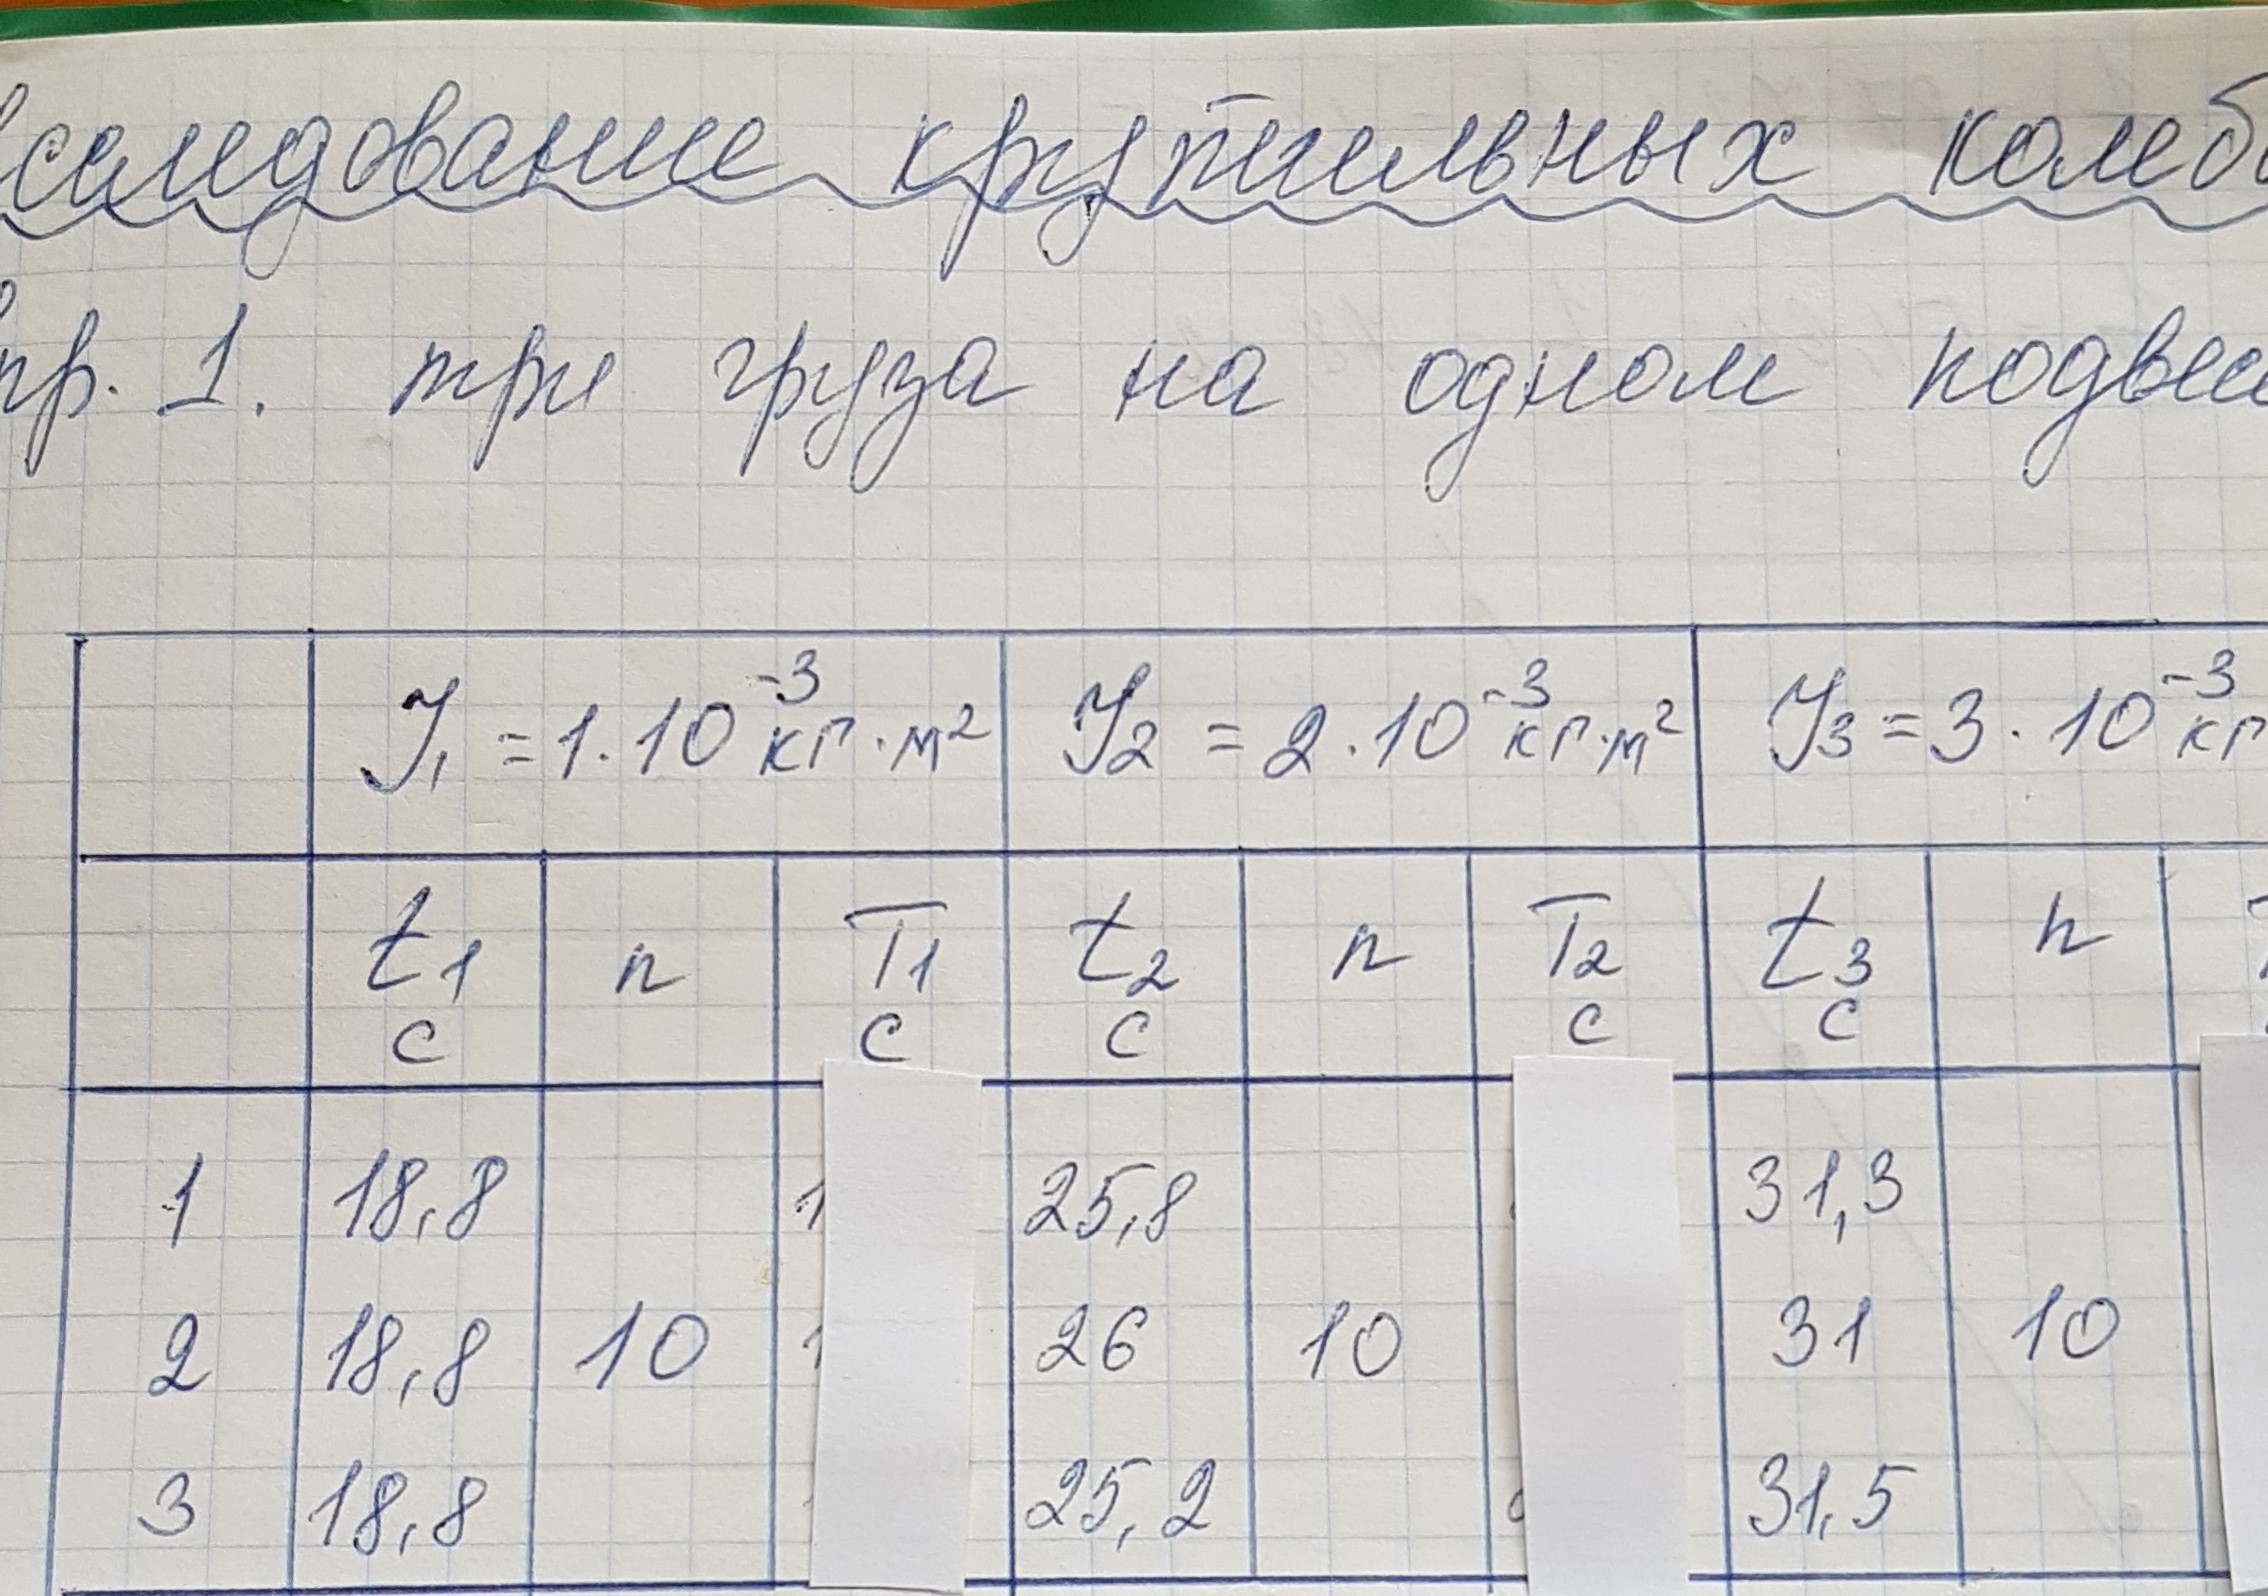 сследование крутильных колеб
пр. 1. три груза на одном подвес
J₁ = 1·10⁻³ кг·м² J₂ = 2·10⁻³ кг·м² J₃ = 3·10⁻³ кг
t₁ n T₁ t₂ n T₂ t₃ n
с с с с с
1 18,8 1 25,8 31,3
2 18,8 10 1 26 10 31 10
3 18,8 25,2 31,5